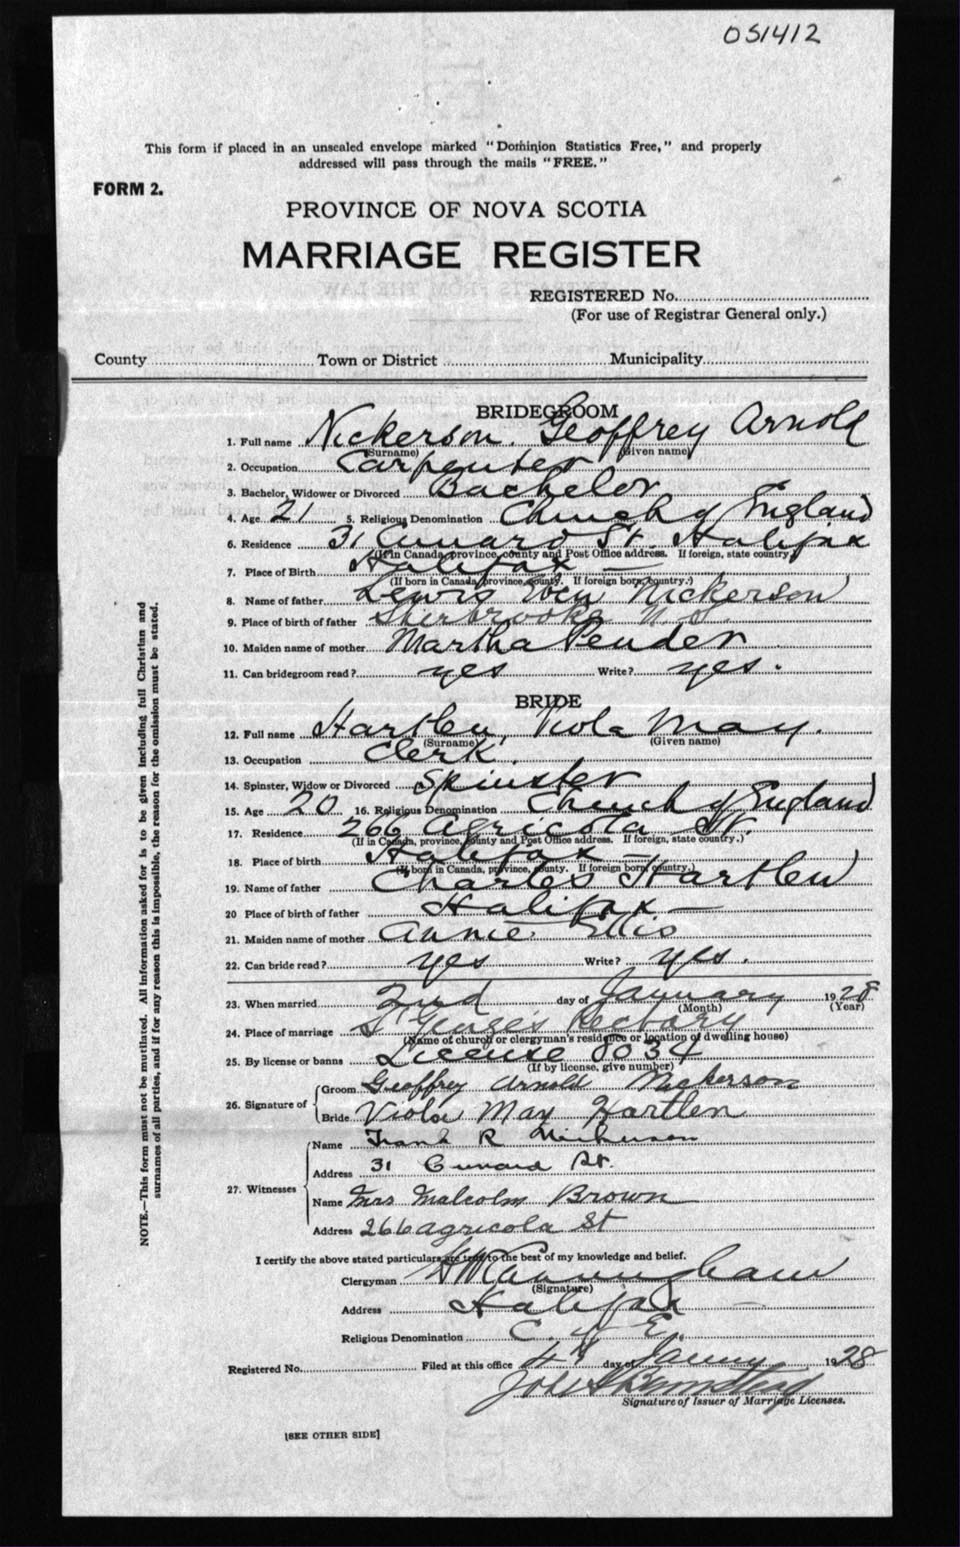 051412
This form if placed in an unsealed envelope marked "Dominion Statistics Free," and properly
addressed will pass through the mails "FREE."
FORM 2.
PROVINCE OF NOVA SCOTIA
MARRIAGE REGISTER
REGISTERED No.
(For use of Registrar General only.)
County Town or District Municipality
BRIDEGROOM
1. Full name Nickerson. Geoffrey Arnold
(Surname) (Given name)
2. Occupation Carpenter
3. Bachelor, Widower or Divorced Bachelor
4. Age 21 5. Religious Denomination Church of England
6. Residence 31 Cunard St. Halifax
(If in Canada, province, county and Post Office address. If foreign, state country)
7. Place of Birth Halifax —
(If born in Canada, province, county. If foreign born, country.)
8. Name of father Lewis Eben Nickerson
9. Place of birth of father Sherbrooke N.S.
10. Maiden name of mother Martha Pender
11. Can bridegroom read? yes Write? yes.
BRIDE
12. Full name Hartlen, Viola May.
(Surname) (Given name)
13. Occupation Clerk.
14. Spinster, Widow or Divorced Spinster
15. Age 20 16. Religious Denomination Church of England
17. Residence 266 Agricola St.
(If in Canada, province, county and Post Office address. If foreign, state country.)
18. Place of birth Halifax —
(If born in Canada, province, county. If foreign born country.)
19. Name of father Charles Hartlen
20 Place of birth of father Halifax —
21. Maiden name of mother Annie Ellis
22. Can bride read? yes Write? yes.
23. When married 2nd day of January 1928
(Month) (Year)
24. Place of marriage St George's Rectory
(Name of church or clergyman's residence or location of dwelling house)
25. By license or banns License 8034
(If by license, give number)
26. Signature of Groom Geoffrey Arnold Nickerson
Bride Viola May Hartlen
27. Witnesses Name Frank R Nickerson
Address 31 Cunard St.
Name Mrs Malcolm Brown
Address 266 Agricola St
I certify the above stated particulars are true to the best of my knowledge and belief.
Clergyman Cunningham
(Signature)
Address Halifax —
Religious Denomination C. of E.
Registered No. Filed at this office 4th day of January 1928
Signature of Issuer of Marriage Licenses.
[SEE OTHER SIDE]
NOTE.—This form must not be mutilated. All information asked for is to be given including full Christian and
surnames of all parties, and if for any reason this is impossible, the reason for the omission must be stated.